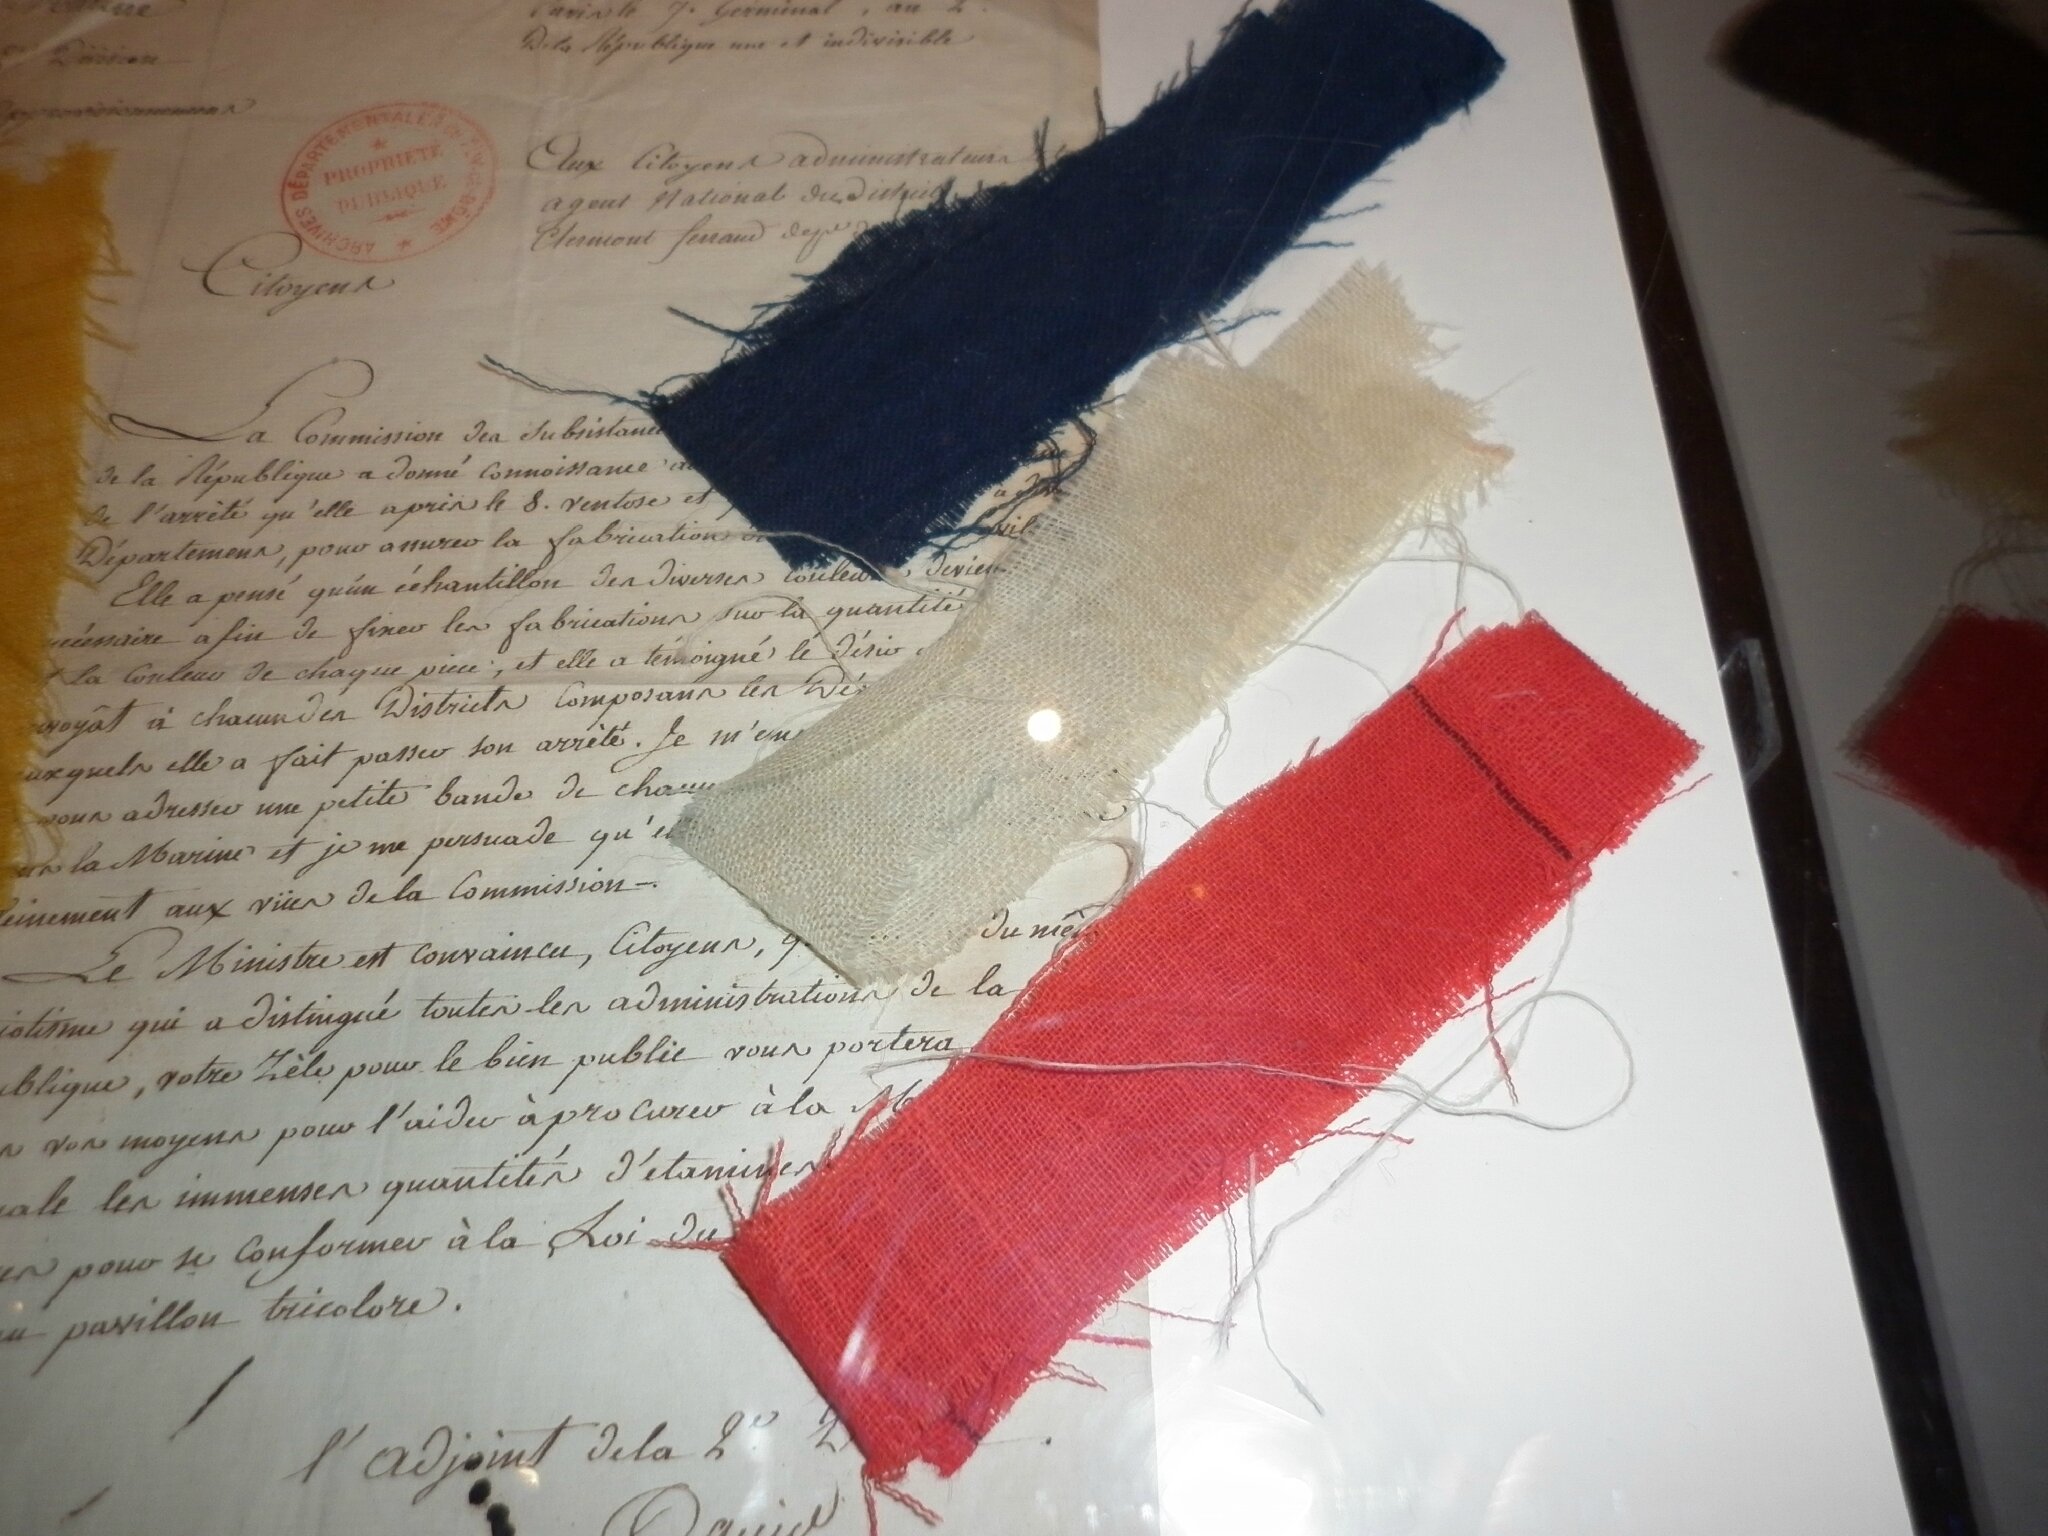 Paris le 7. Germinal, an 2.
Division
De la République une et indivisible
approvisionnemens
ARCHIVES DÉPARTEMENTALES DU PUY-DE-DÔME
PROPRIÉTÉ
PUBLIQUE
Aux Citoyens administrateurs
agent National du District
Clermont ferrand dept
Citoyens
La Commission des Subsistance
de la République a donné connoissance
de l'arrêté qu'elle a pris le 8. ventose et
Départemens, pour assurer la fabrication
Elle a pensé qu'un échantillon des diverses couleurs
nécessaire afin de fixer les fabrications sur la quantité
la couleur de chaque piece; et elle a témoigné le désir
à chacun des Districts composans les
elle a fait passer son arrêté. Je m'em
vous adresser une petite bande de
la Marine et je me persuade qu'e
aux vües de la Commission.
Le Ministre est convaincu, Citoyens, du mê
qui a distingué toutes les administrations de la
votre Zèle pour le bien public vous portera
vos moyens pour l'aider à procurer à la
les immenses quantités d'étamines
pour se conformer à la Loi du
pavillon tricolore.
l'adjoint de la 2e
David